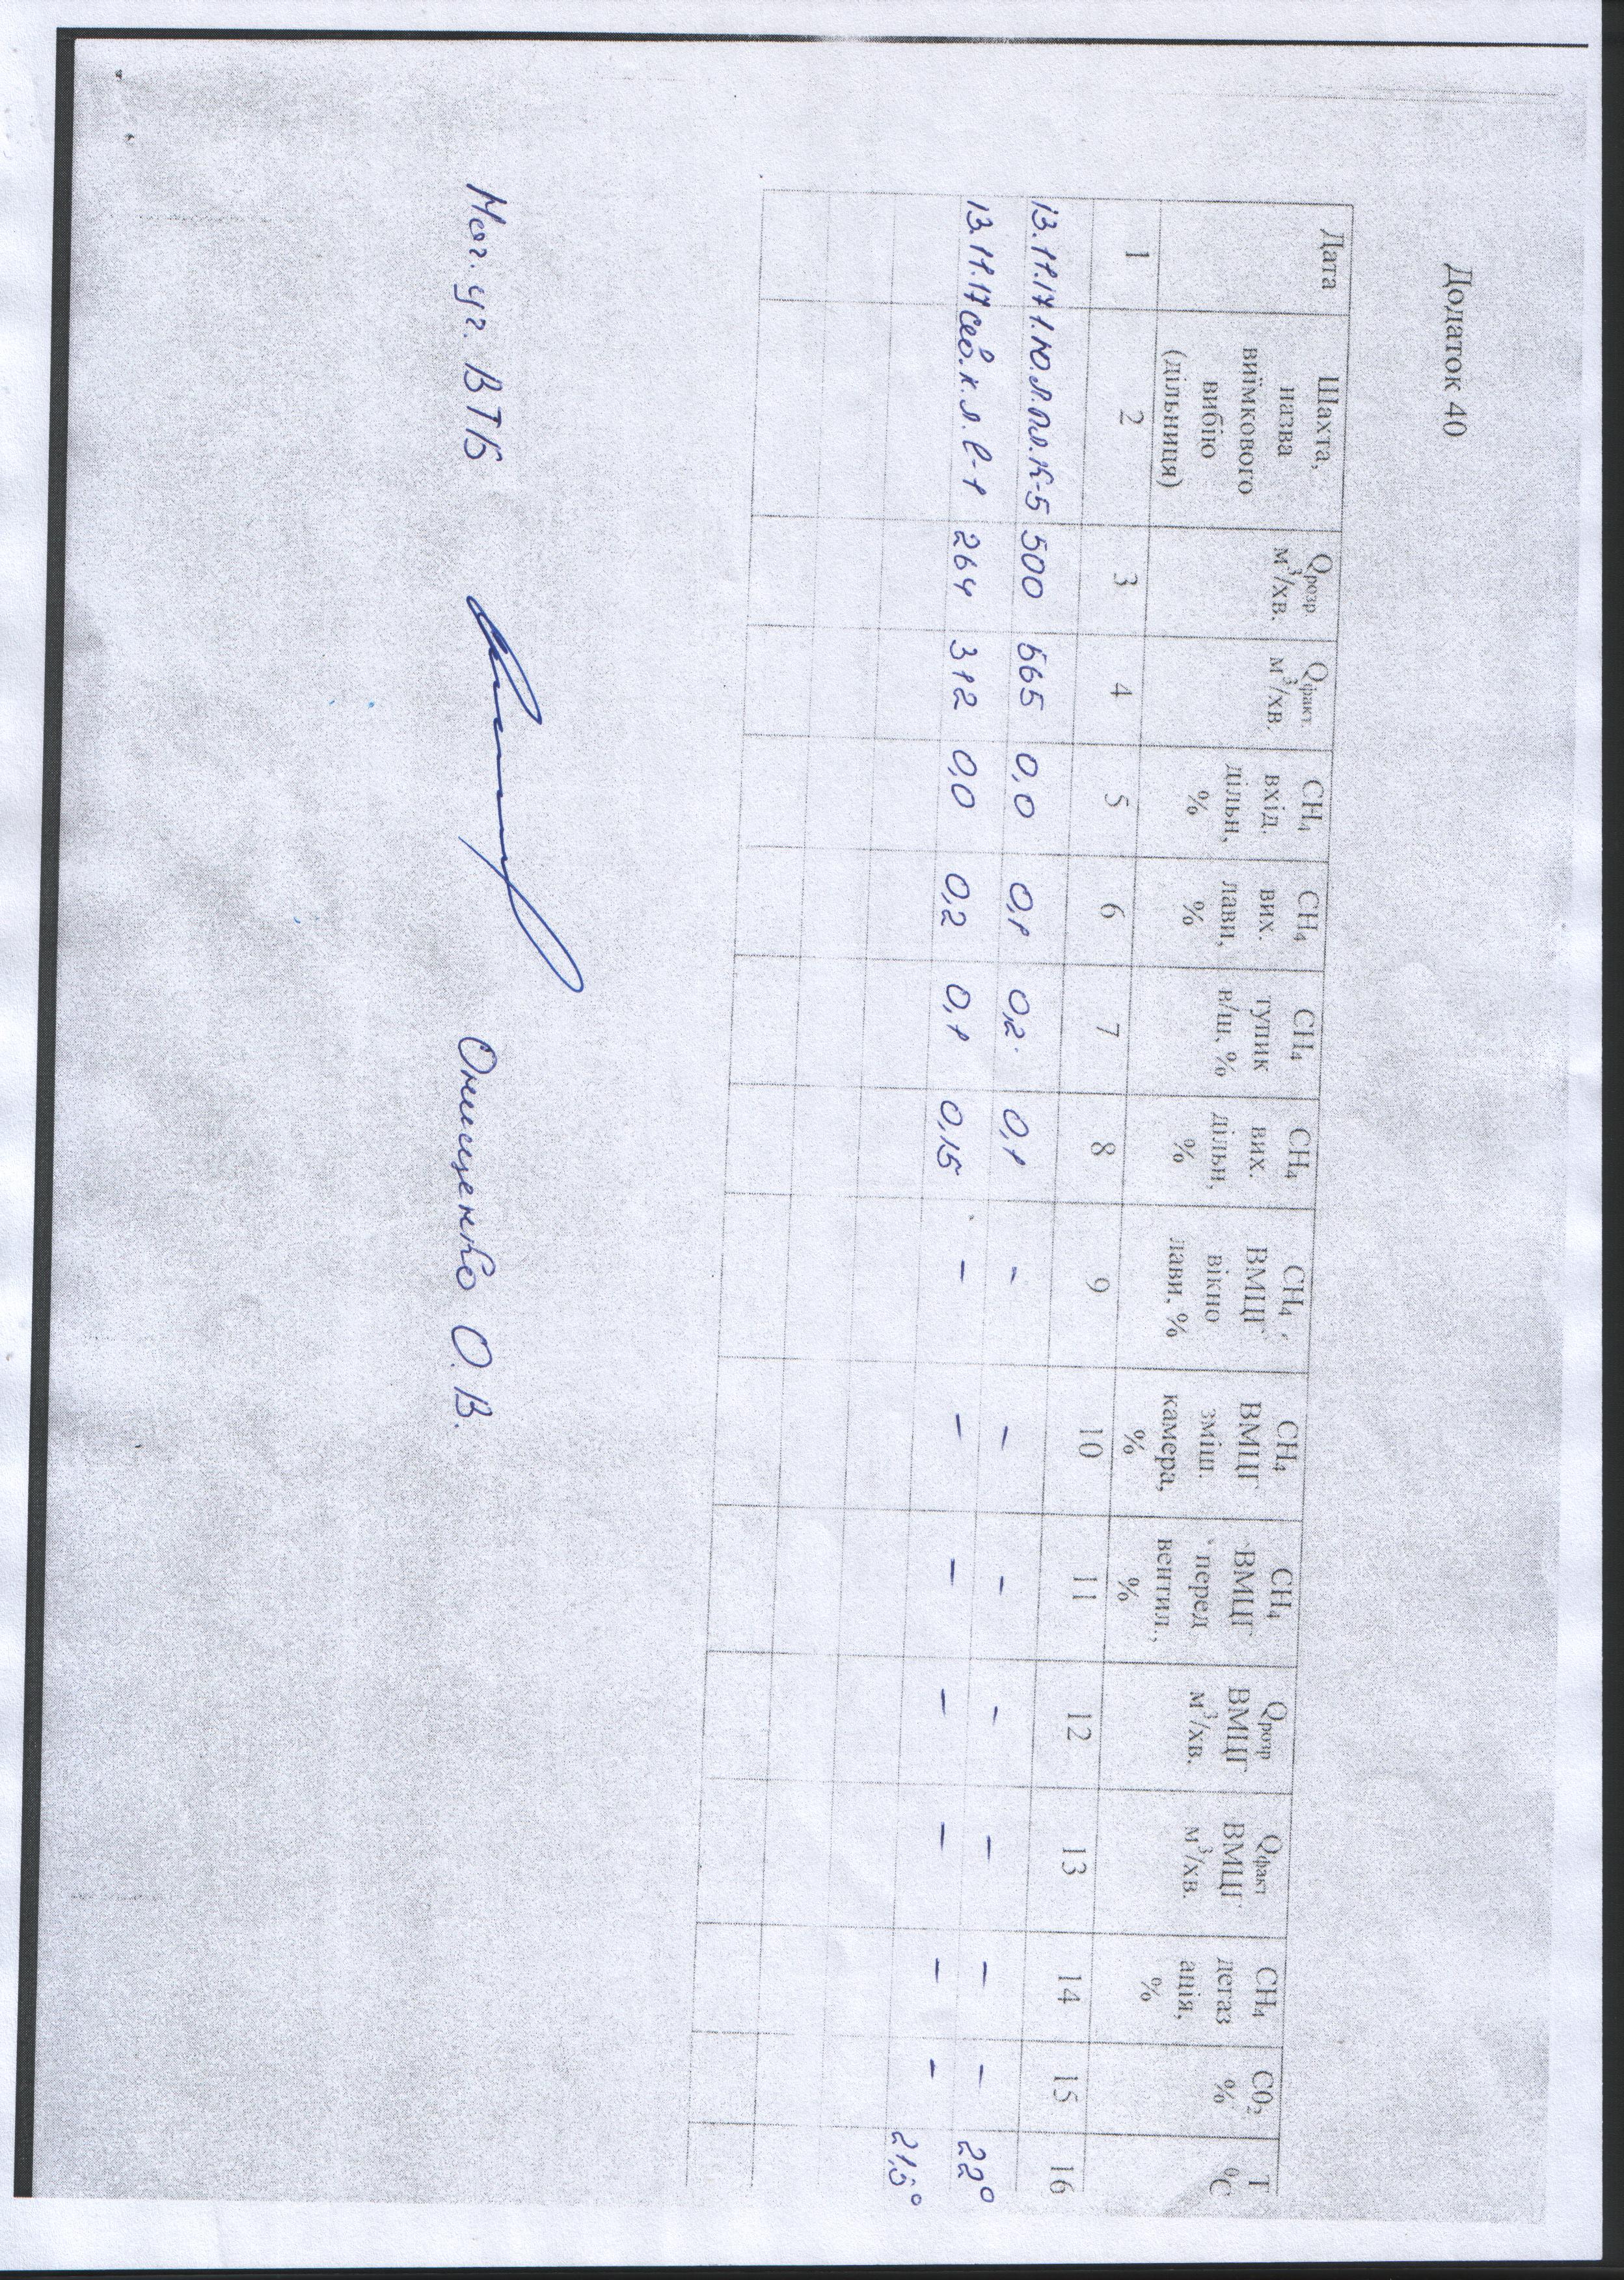 Додаток 40
Дата | Шахта, назва виїмкового вибію (дільниця) | Qрозр. м³/хв. | Qфакт. м³/хв. | CH₄ вхід. дільн, % | CH₄ вих. лави, % | CH₄ тупик в/ш, % | CH₄ вих. дільн, % | CH₄ ВМЦГ вікно лави, % | CH₄ ВМЦГ зміш. камера, % | CH₄ ВМЦГ перед вентил., % | Qрозр ВМЦГ м³/хв. | Qфакт ВМЦГ м³/хв. | CH₄ дегазація, % | CO₂ % | T ⁰C
1 | 2 | 3 | 4 | 5 | 6 | 7 | 8 | 9 | 10 | 11 | 12 | 13 | 14 | 15 | 16
13.11.17 | 1.Ю.Л.пл.К-5 | 500 | 565 | 0,0 | 0,1 | 0,2 | 0,1 | - | - | - | - | - | - | - | 22°
13.11.17 | сев.к.л. l-1 | 264 | 312 | 0,0 | 0,2 | 0,1 | 0,15 | - | - | - | - | - | - | - | 21,5°
Нач. уч. ВТБ Онищенко О. В.